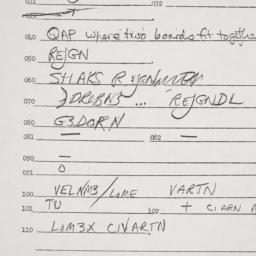 031 032
040 QAP where two boards fit together
050 REIGN
060 SHAKS R
070 ... REIGNDL
080 G3DORN
081 — 082 —
090 —
091 0
100 VELNM3/LOME VARTN
101 TU 102 + CIARN
110 LOM3X CIVARTN